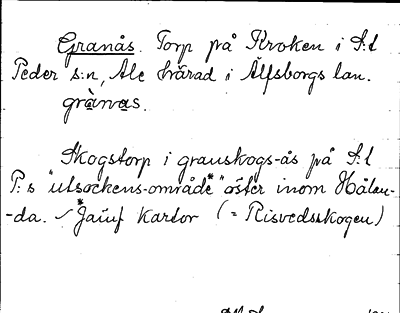 Granås. Torp på Kroken i S:t
Peder s:n, Ale härad i Älfsborgs län.
grànas.
Skogstorp i granskogs-ås på S:t
P:s "utsockens-område*" öster inom Hålan-
-da. *Jämf kartor (= Risvedsskogen)